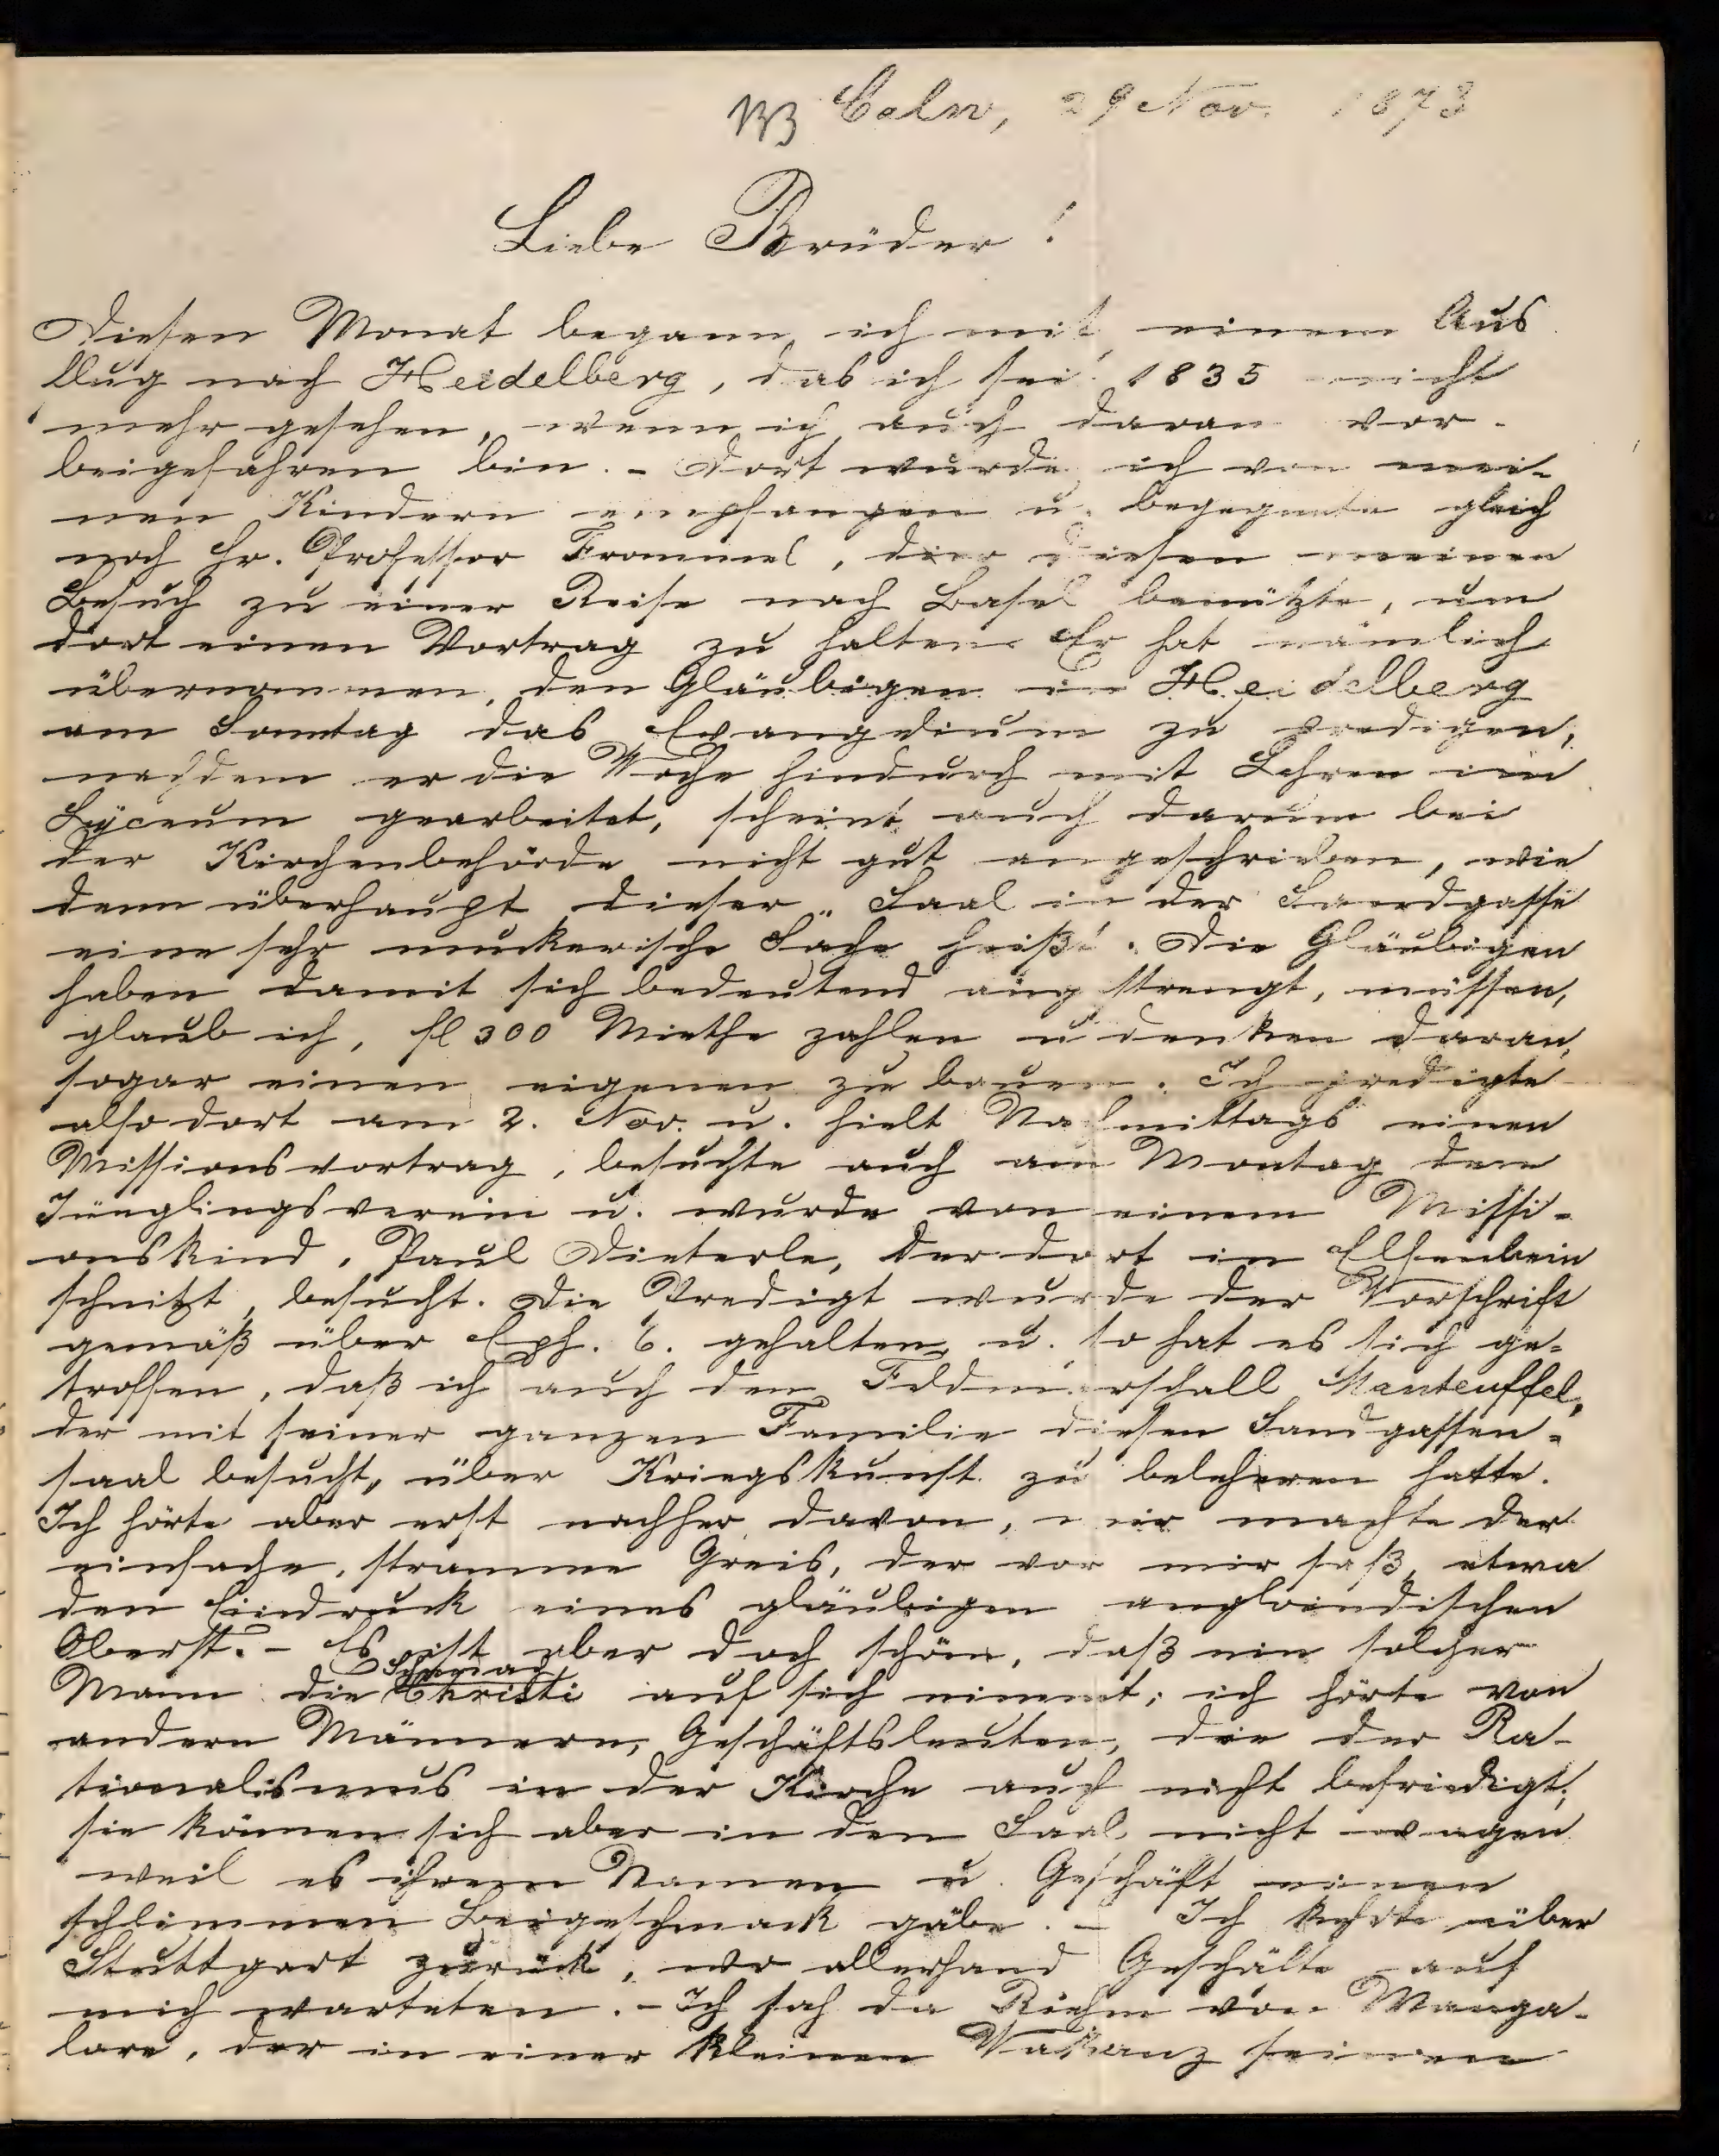 133 Calw, 29 Nov. 1873
Liebe Brüder!
Diesen Monat begann ich mit einem Aus
flug nach Heidelberg, das ich seit 1835 nicht
mehr gesehen, wenn ich auch daran vor-
beigefahren bin. - Dort wurde ich von mei-
nen Kindern empfangen u. begegnete gleich
noch Hr. Professor Frommel, der diesen meinen
Besuch zu einer Reise nach Basel benützte, um
dort einen Vortrag zu halten. Er hat nämlich
übernommen, den Gläubigen in Heidelberg
am Sonntag das Evangelium zu predigen,
nachdem er die Woche hindurch mit Lehren im
Lyceum gearbeitet, scheint auch darum bei
der Kirchenbehörde nicht gut angeschrieben, wie
denn überhaupt dieser Saal in der Sandgasse
eine sehr muckerische Sache heißt. Die Gläubigen
haben damit sich bedeutend angstrengt, müssen,
glaub ich, fl 300 Miethe zahlen u denken daran,
sogar einen eigenen zu bauen. Ich predigte
also dort am 2. Nov. u. hielt Nachmittags einen
Missionsvortrag, besuchte auch am Montag den
Jünglingsverein u. wurde von einem Missi-
onskind, Paul Dieterle, der dort in Elfenbein
schnitzt, besucht. Die Predigt wurde der Vorschrift
gemäß über Eph. 6. gehalten, u. so hat es sich ge-
troffen, daß ich auch den Feldmarschall Manteuffel,
der mit seiner ganzen Familie diesen Sandgassen-
saal besucht, über Kriegskunst zu belehren hatte.
Ich hörte aber erst nachher davon, mir machte der
einfache, stramme Greis, der vor mir saß, etwa
den Eindruck eines gläubigen angloindischen
Oberst. - Es ist aber doch schön, daß ein solcher
Mann die Schmach Christi auf sich nimmt; ich hörte von
andern Männern, Geschäftsleuten, die der Ra-
tionalismus in der Kirche auch nicht befriedigt;
sie können sich aber in den Saal nicht wagen
weil es ihrem Namen u. Geschäft einen
schlimmen Beigeschmack gäbe. - Ich kehrte über
Stuttgart zurück, wo allerhand Geschäfte auf
mich warteten. - Ich sah da Riehm von Manga-
lore, der in einer kleinen Vakanz seinen